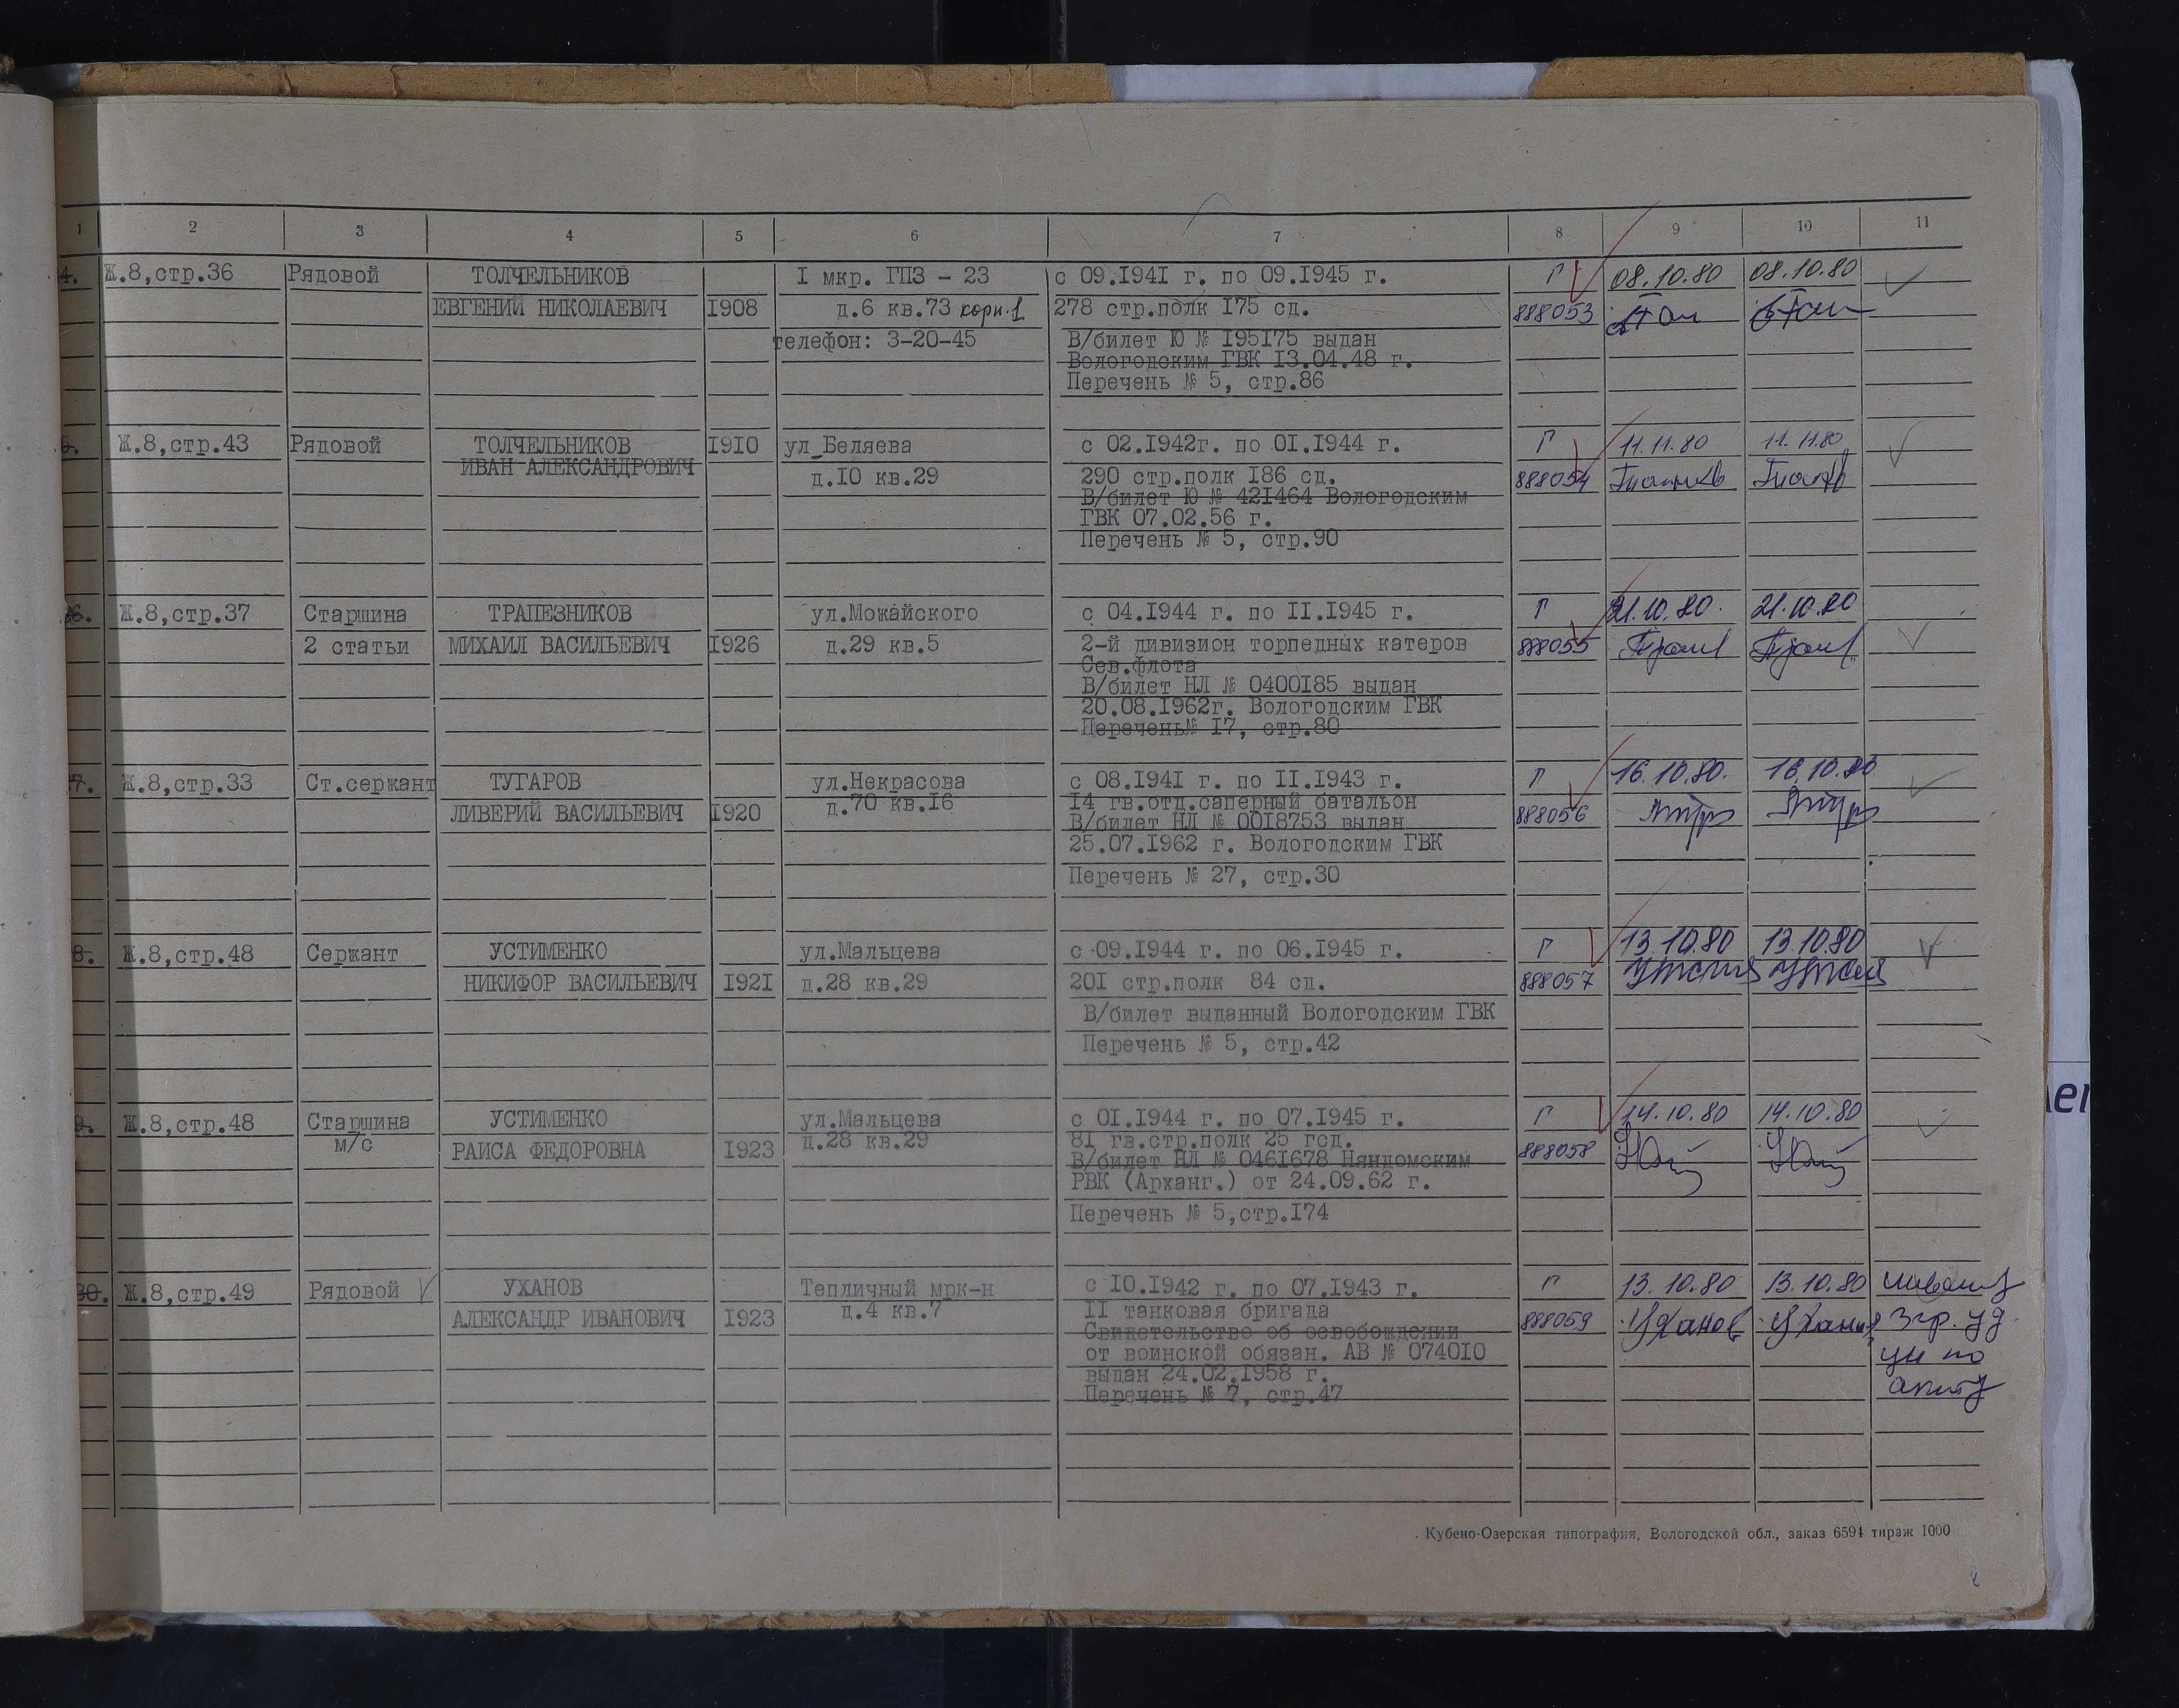 1 2 3 4 5 6 7 8 9 10 11
4. Ж.8,стр.36 Рядовой ТОЛЧЕЛЬНИКОВ I мкр. ГПЗ - 23 с 09.I94I г. по 09.I945 г. Г 08.10.80 08.10.80
ЕВГЕНИЙ НИКОЛАЕВИЧ I908 д.6 кв.73 корп.1 278 стр.полк I75 сд. 888053
телефон: 3-20-45 В/билет Ю № I95I75 выдан
Вологодским ГВК I3.04.48 г.
Перечень № 5, стр.86
5. Ж.8,стр.43 Рядовой ТОЛЧЕЛЬНИКОВ I9I0 ул.Беляева с 02.I942г. по 0I.I944 г. Г 11.11.80 11.11.80
ИВАН АЛЕКСАНДРОВИЧ д.I0 кв.29 290 стр.полк I86 сд. 888054
В/билет Ю № 42I464 Вологодским
ГВК 07.02.56 г.
Перечень № 5, стр.90
26. Ж.8,стр.37 Старшина ТРАПЕЗНИКОВ ул.Можайского с 04.I944 г. по II.I945 г. Г 21.10.80. 21.10.80
2 статьи МИХАИЛ ВАСИЛЬЕВИЧ I926 д.29 кв.5 2-й дивизион торпедных катеров 888055
Сев.флота
В/билет НЛ № 0400I85 выдан
20.08.I962г. Вологодским ГВК
Перечень№ I7, стр.80
27. Ж.8,стр.33 Ст.сержант ТУГАРОВ ул.Некрасова с 08.I94I г. по II.I943 г. Г 16.10.80. 16.10.80
ЛИВЕРИЙ ВАСИЛЬЕВИЧ I920 д.70 кв.I6 I4 гв.отд.саперный батальон 888056
В/билет НЛ № 00I8753 выдан
25.07.I962 г. Вологодским ГВК
Перечень № 27, стр.30
8. Ж.8,стр.48 Сержант УСТИМЕНКО ул.Мальцева с 09.I944 г. по 06.I945 г. Г 13.10.80 13.10.80
НИКИФОР ВАСИЛЬЕВИЧ I92I д.28 кв.29 20I стр.полк 84 сд. 888057
В/билет выданный Вологодским ГВК
Перечень № 5, стр.42
9. Ж.8,стр.48 Старшина УСТИМЕНКО ул.Мальцева с 0I.I944 г. по 07.I945 г. Г 14.10.80 14.10.80
м/с РАИСА ФЕДОРОВНА I923 д.28 кв.29 8I гв.стр.полк 25 гсд. 888058
В/билет НЛ № 046I678 Няндомским
РВК (Арханг.) от 24.09.62 г.
Перечень № 5,стр.I74
30. Ж.8,стр.49 Рядовой УХАНОВ Тепличный мрк-н с I0.I942 г. по 07.I943 г. Г 13.10.80 13.10.80
АЛЕКСАНДР ИВАНОВИЧ I923 д.4 кв.7 II танковая бригада 888059 Уханов Уханов
Свидетельство об освобождении
от воинской обязан. АВ № 0740I0
выдан 24.02.I958 г.
Перечень № 7, стр.47
Кубено-Озерская типография, Вологодской обл., заказ 6594 тираж 1000